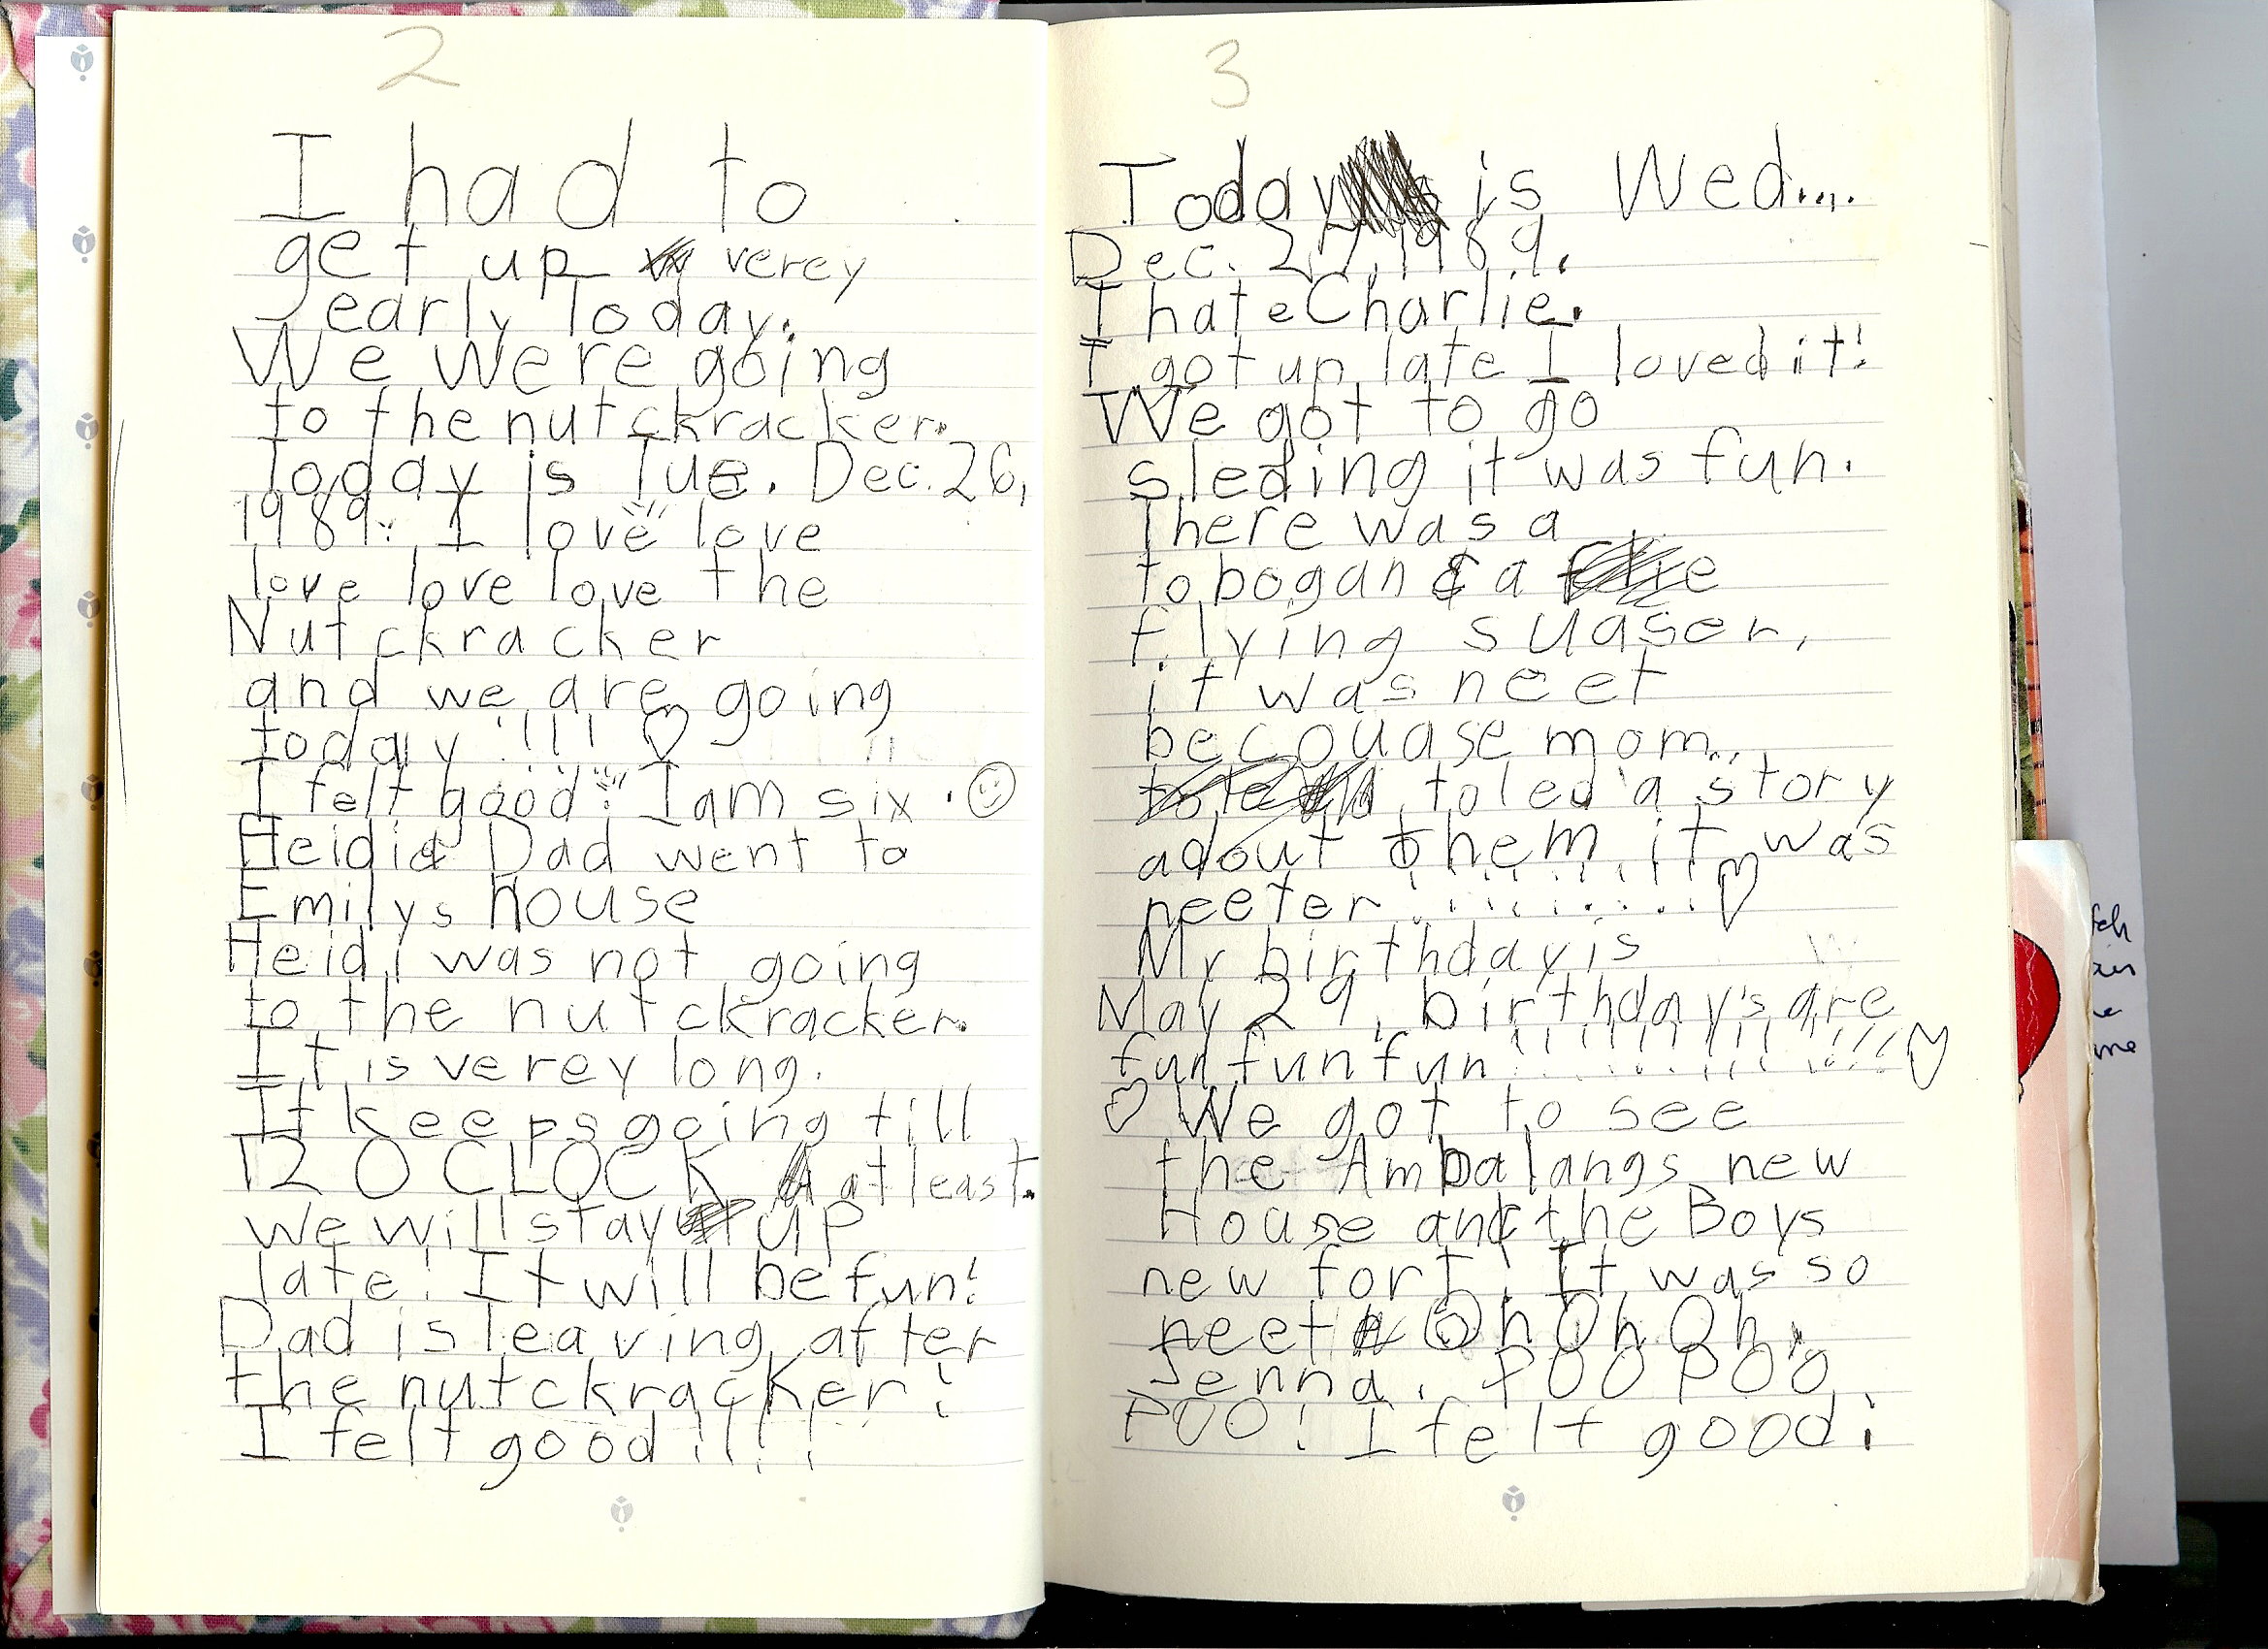 2
I had to
get up verey
early Today.
We were going
to the nutckracker.
Today is Tue. Dec. 26,
1989. I love love
love love love the
Nutckracker
and we are going
today !!! ♡
I felt good! I am six. ☺
Heidi & Dad went to
Emilys house
Heidi was not going
to the nutckracker.
It is verey long.
It keeps going till
12 O CLOCK at least.
we will stay up
late! It will be fun!
Dad is leaving after
the nutckracker!
I felt good!!!!
3
Today is Wed....
Dec. 27, 1989.
I hate Charlie.
I got up late I loved it!
We got to go
sleding it was fun.
There was a
tobogan & a
flying suaser,
it was neet
becouase mom
toled a story
adout them it was
neeter!!!!!!!!!! ♡
My birthday is
May 29, birthday's are
fun fun fun!!!!!!!!!!!! ♡
♡ We got to see
the Ambalangs new
House and the Boys
new fort! It was so
neet Oh Oh Oh,
Jenna. POO POO
POO! I felt good!
feh
me